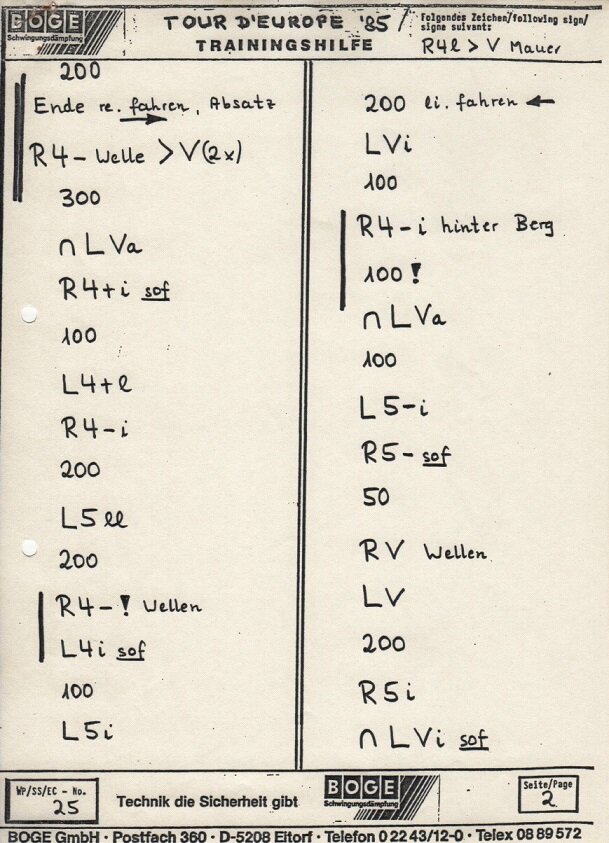 BOGE
Schwingungsdämpfung
TOUR D'EUROPE '85
TRAININGSHILFE
Folgendes Zeichen/following sign/
signe suivant:
R4l > V Mauer
200
Ende re. fahren, Absatz
R4- Welle > V (2x)
300
∩ L Va
R4+i sof
100
L4+l
R4-i
200
L5 ll
200
R4-! Wellen
L4i sof
100
L5i
200 li. fahren ←
LVi
100
R4-i hinter Berg
100 !
∩ L Va
100
L5-i
R5- sof
50
RV Wellen
LV
200
R5i
∩ LVi sof
WP/SS/EC - No.
25
Technik die Sicherheit gibt
BOGE
Schwingungsdämpfung
Seite/Page
2
BOGE GmbH · Postfach 360 · D-5208 Eitorf · Telefon 0 22 43/12-0 · Telex 08 89 572